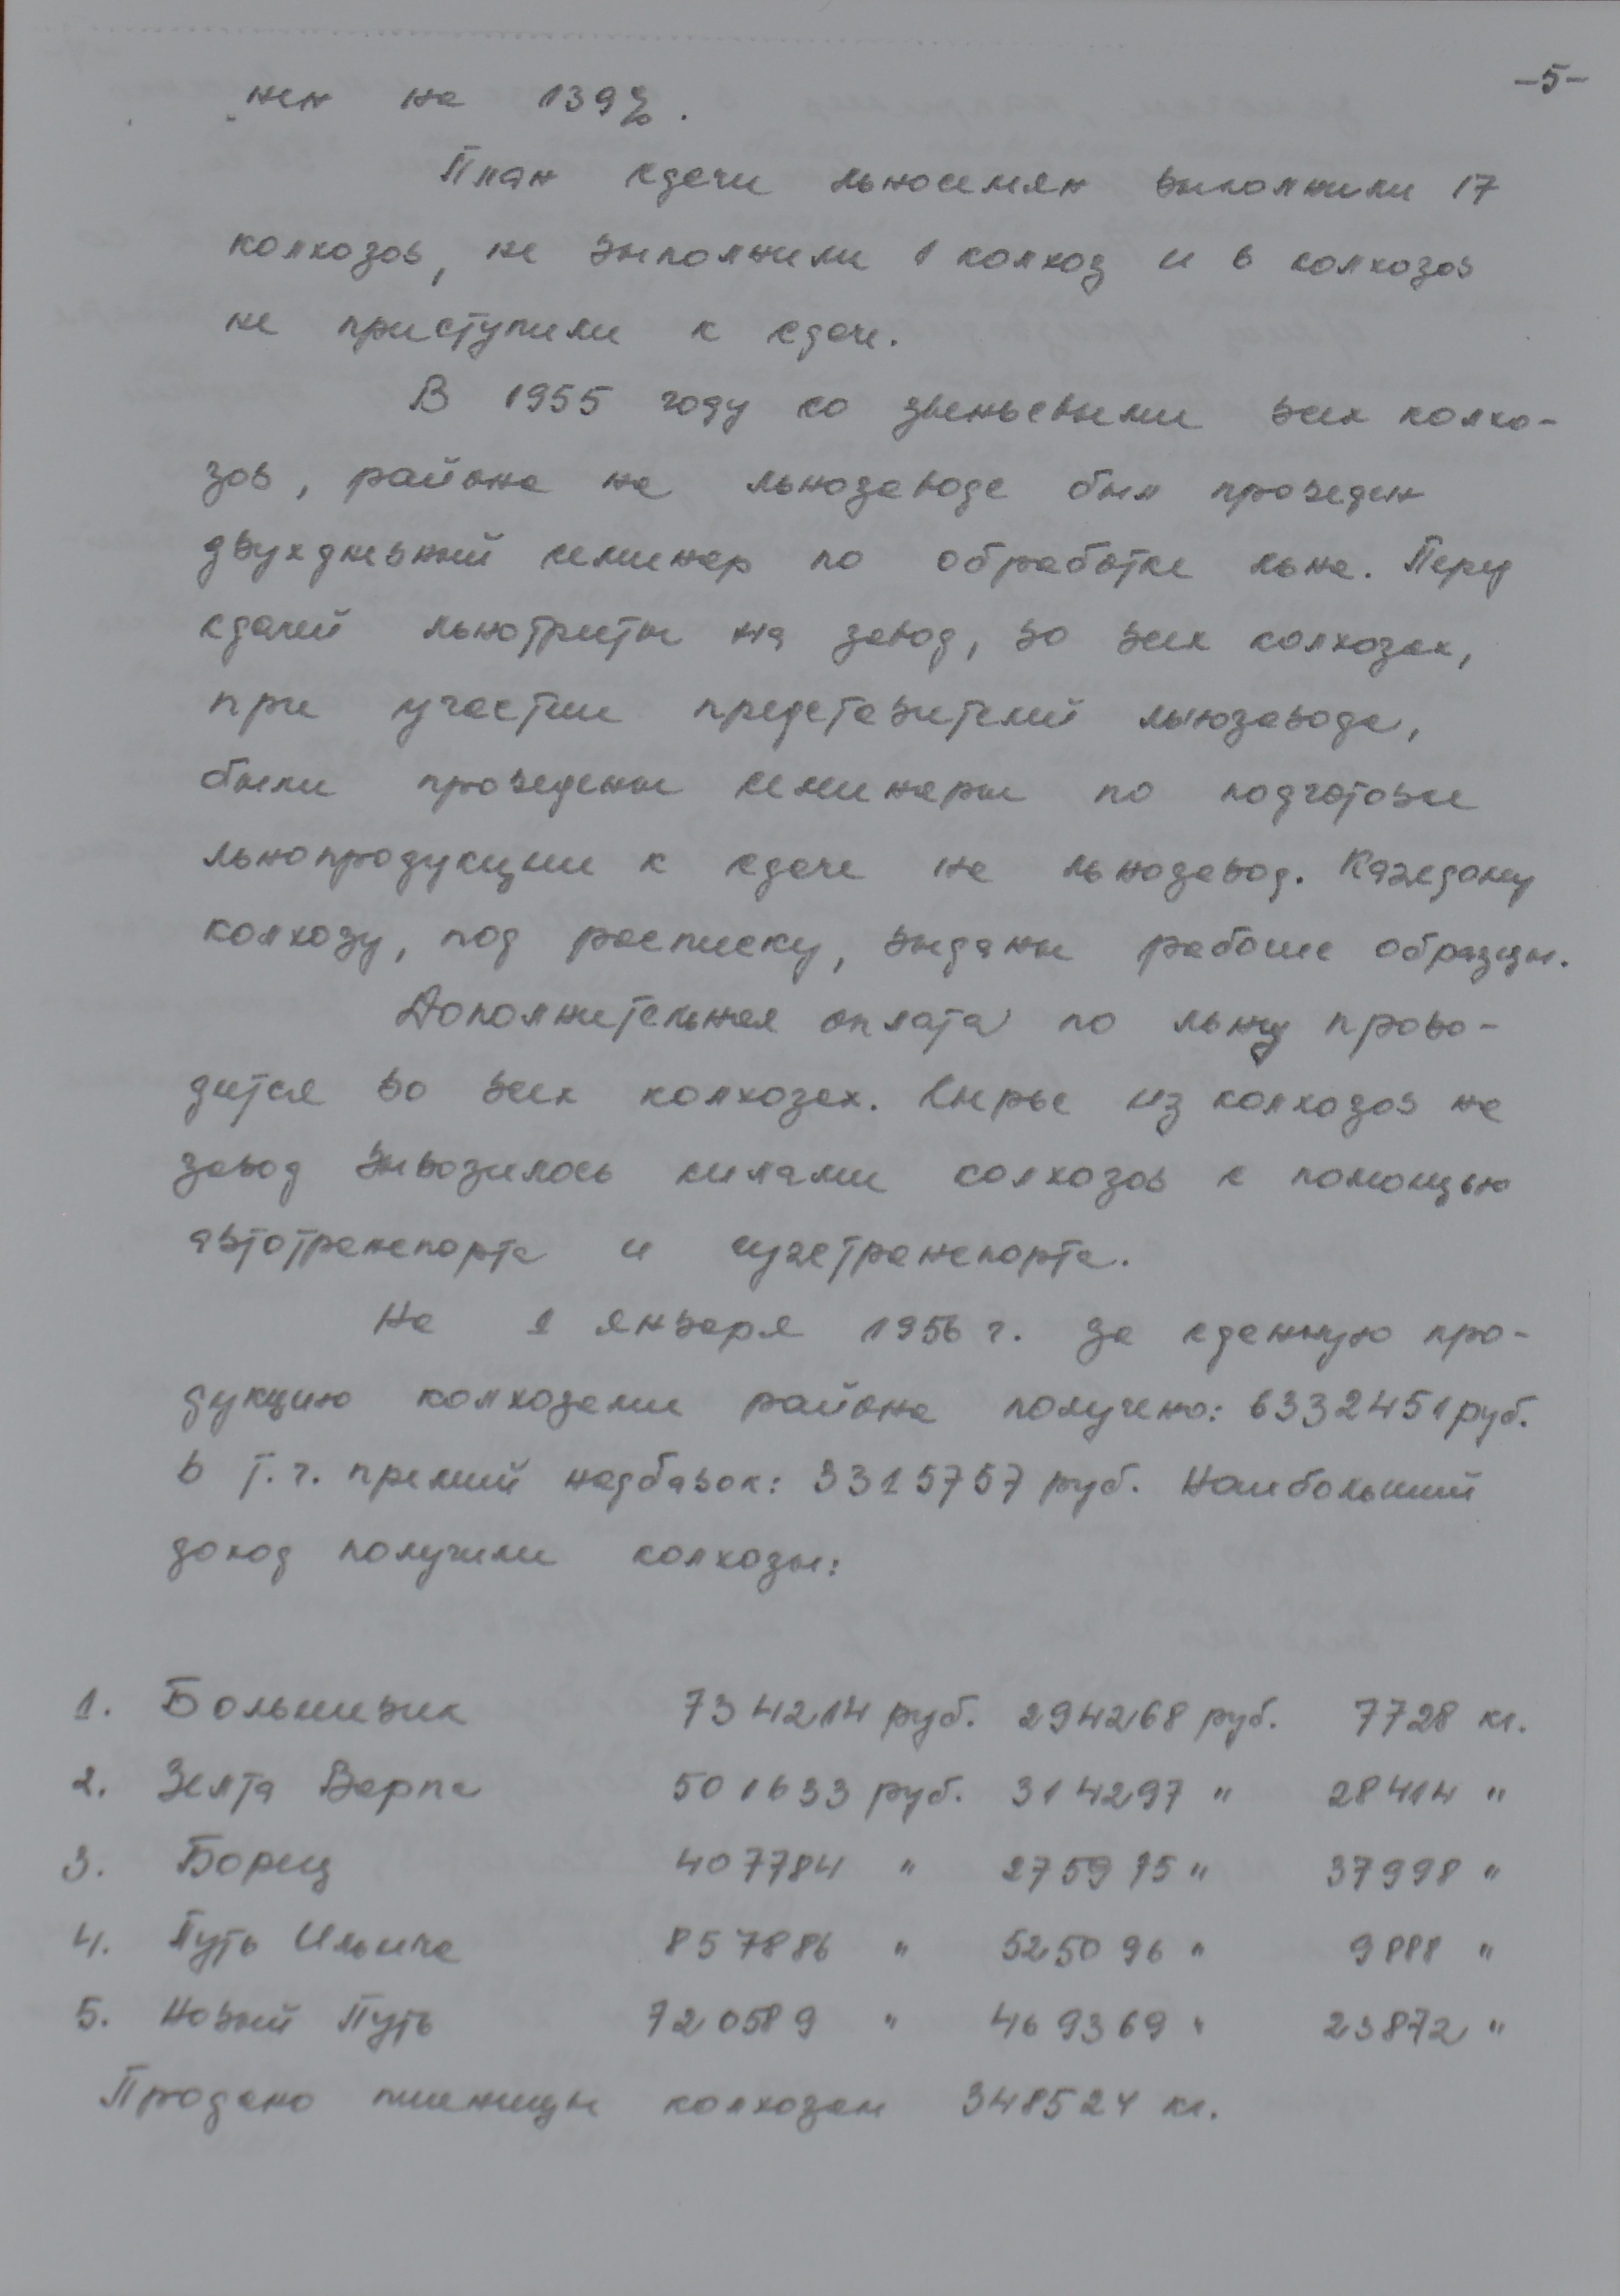 -5-
нен на 139%.
План сдачи льносемян выполнили 17
колхозов, не выполнили 1 колхоз и 6 колхозов
не приступили к сдаче.
В 1955 году со звеньевыми всех колхо-
зов, района на льнозаводе был проведен
двухдневный семинар по обработке льна. Перед
сдачей льнотресты на завод, во всех колхозах,
при участии представителей льнозавода,
были проведены семинары по подготовке
льнопродукции к сдаче на льнозавод. Каждому
колхозу, под расписку, выданы рабочие образцы.
Дополнительная оплата по льну прово-
дится во всех колхозах. Сырье из колхозов на
завод вывозилось силами колхозов с помощью
автотранспорта и гужтранспорта.
На 1 января 1956 г. за сданную про-
дукцию колхозами района получено: 6332451 руб.
в т.ч. премий надбавок: 3315757 руб. Наибольший
доход получили колхозы:
1. Большевик 734214 руб. 294268 руб. 7728 кг.
2. Зелта Варпа 501633 руб. 314297 " 28414 "
3. Борец 407784 " 275975 " 37998 "
4. Путь Ильича 857886 " 525096 " 9888 "
5. Новый Путь 720589 " 469369 " 23872 "
Продано пшеницы колхозам 348524 кг.